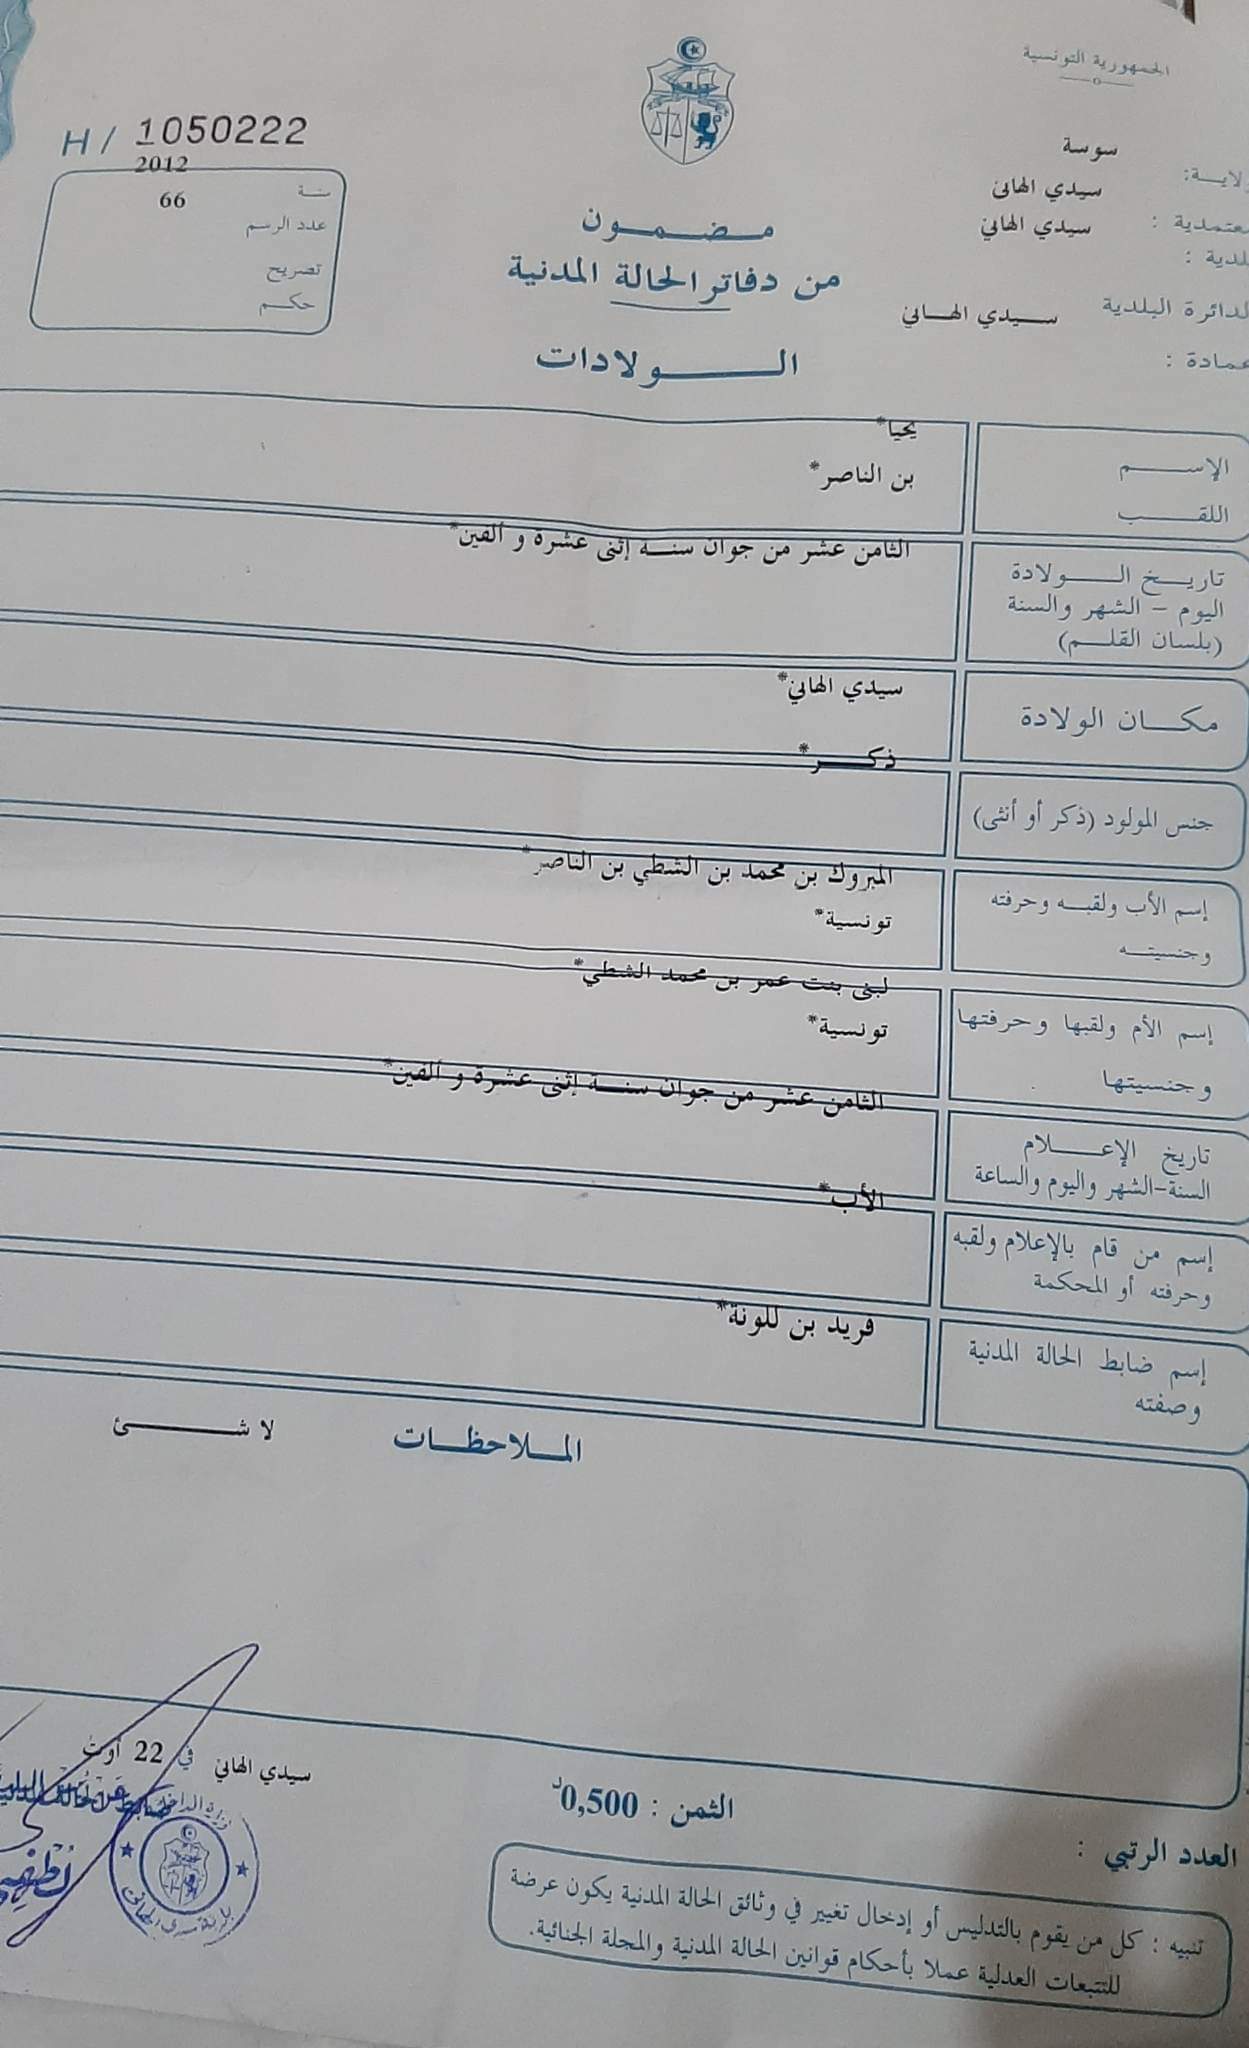 الجمهورية التونسية
H / 1050222
سنة 2012
عدد الرسم 66
تصريح
حكم
ولاية: سوسة
معتمدية : سيدي الهاني
بلدية : سيدي الهاني
الدائرة البلدية سيدي الهاني
عمادة :
مضمون
من دفاتر الحالة المدنية
الولادات
الإسم يحيا*
اللقب بن الناصر*
تاريخ الولادة
اليوم - الشهر والسنة
(بلسان القلم)
الثامن عشر من جوان سنة إثنى عشرة و ألفين*
مكان الولادة سيدي الهاني*
جنس المولود (ذكر أو أنثى) ذكر*
إسم الأب ولقبه وحرفته
وجنسيته
المبروك بن محمد بن الشطي بن الناصر*
تونسية*
إسم الأم ولقبها وحرفتها
وجنسيتها
لبنى بنت عمر بن محمد الشطي*
تونسية*
تاريخ الإعلام
السنة-الشهر واليوم والساعة
الثامن عشر من جوان سنة إثنى عشرة و ألفين*
إسم من قام بالإعلام ولقبه
وحرفته أو المحكمة
الأب*
إسم ضابط الحالة المدنية
وصفته
فريد بن للونة*
الملاحظات
لا شئ
سيدي الهاني في 22 أوت
الثمن : 0,500د
العدد الرتبي :
تنبيه : كل من يقوم بالتدليس أو إدخال تغيير في وثائق الحالة المدنية يكون عرضة
للتتبعات العدلية عملا بأحكام قوانين الحالة المدنية والمجلة الجنائية.
وزارة الداخلية
بلدية سيدي الهاني